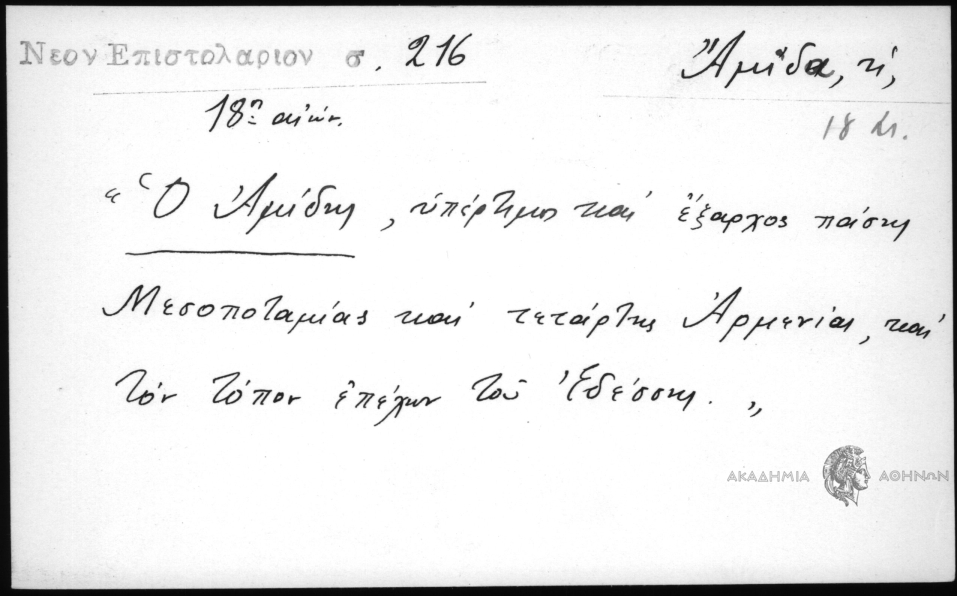 Νεον Επιστολαριον σ. 216
Ἄμιδα, ἡ,
18η αἰών.
18 αι.
“Ὁ Ἀμίδης, ὑπέρτιμος καὶ ἔξαρχος πάσης
Μεσοποταμίας καὶ τετάρτης Ἀρμενίας, καὶ
τὸν τόπον ἐπέχων τοῦ Ἐδέσσης.”
ΑΚΑΔΗΜΙΑ ΑΘΗΝΩΝ